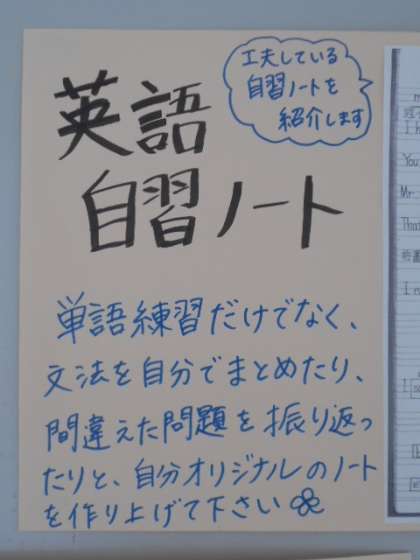 英語
自習ノート
工夫している
自習ノートを
紹介します
単語練習だけでなく、
文法を自分でまとめたり、
間違えた問題を振り返っ
たりと、自分オリジナルのノート
を作り上げて下さい
You
Mr